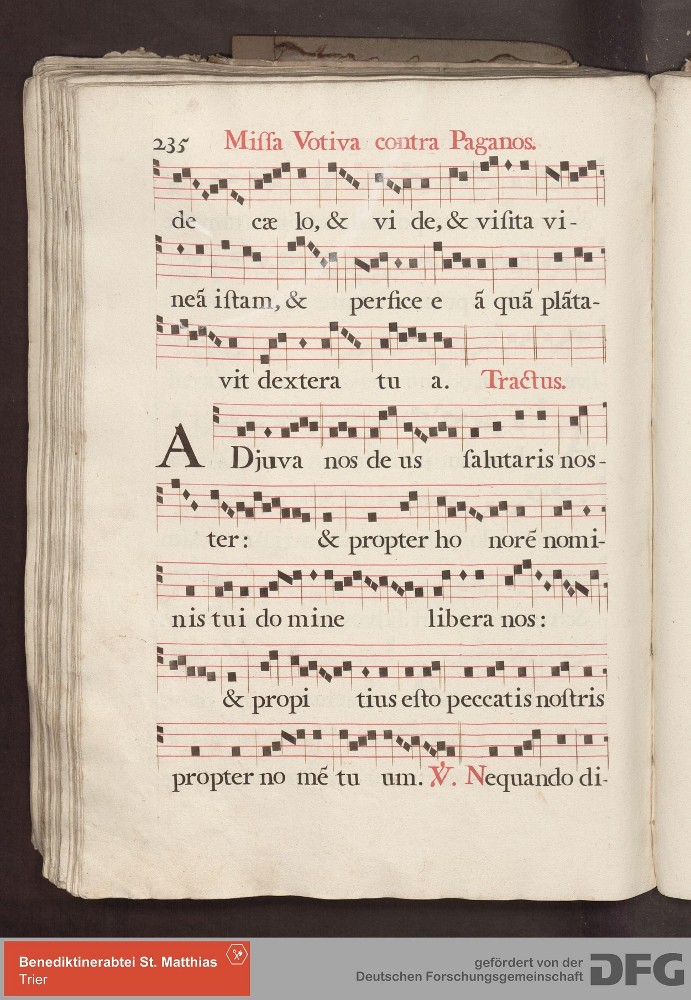 235 Miſſa Votiva contra Paganos.
de cæ lo, & vi de, & viſita vi-
neã iſtam, & perfice e ã quã plãta-
vit dextera tu a. Tractus.
A Djuva nos de us ſalutaris nos-
ter: & propter ho norẽ nomi-
nis tui do mine libera nos:
& propi tius eſto peccatis noſtris
propter no mẽ tu um. ℣. Nequando di-
Benediktinerabtei St. Matthias
Trier
gefördert von der
Deutschen Forschungsgemeinschaft
DFG